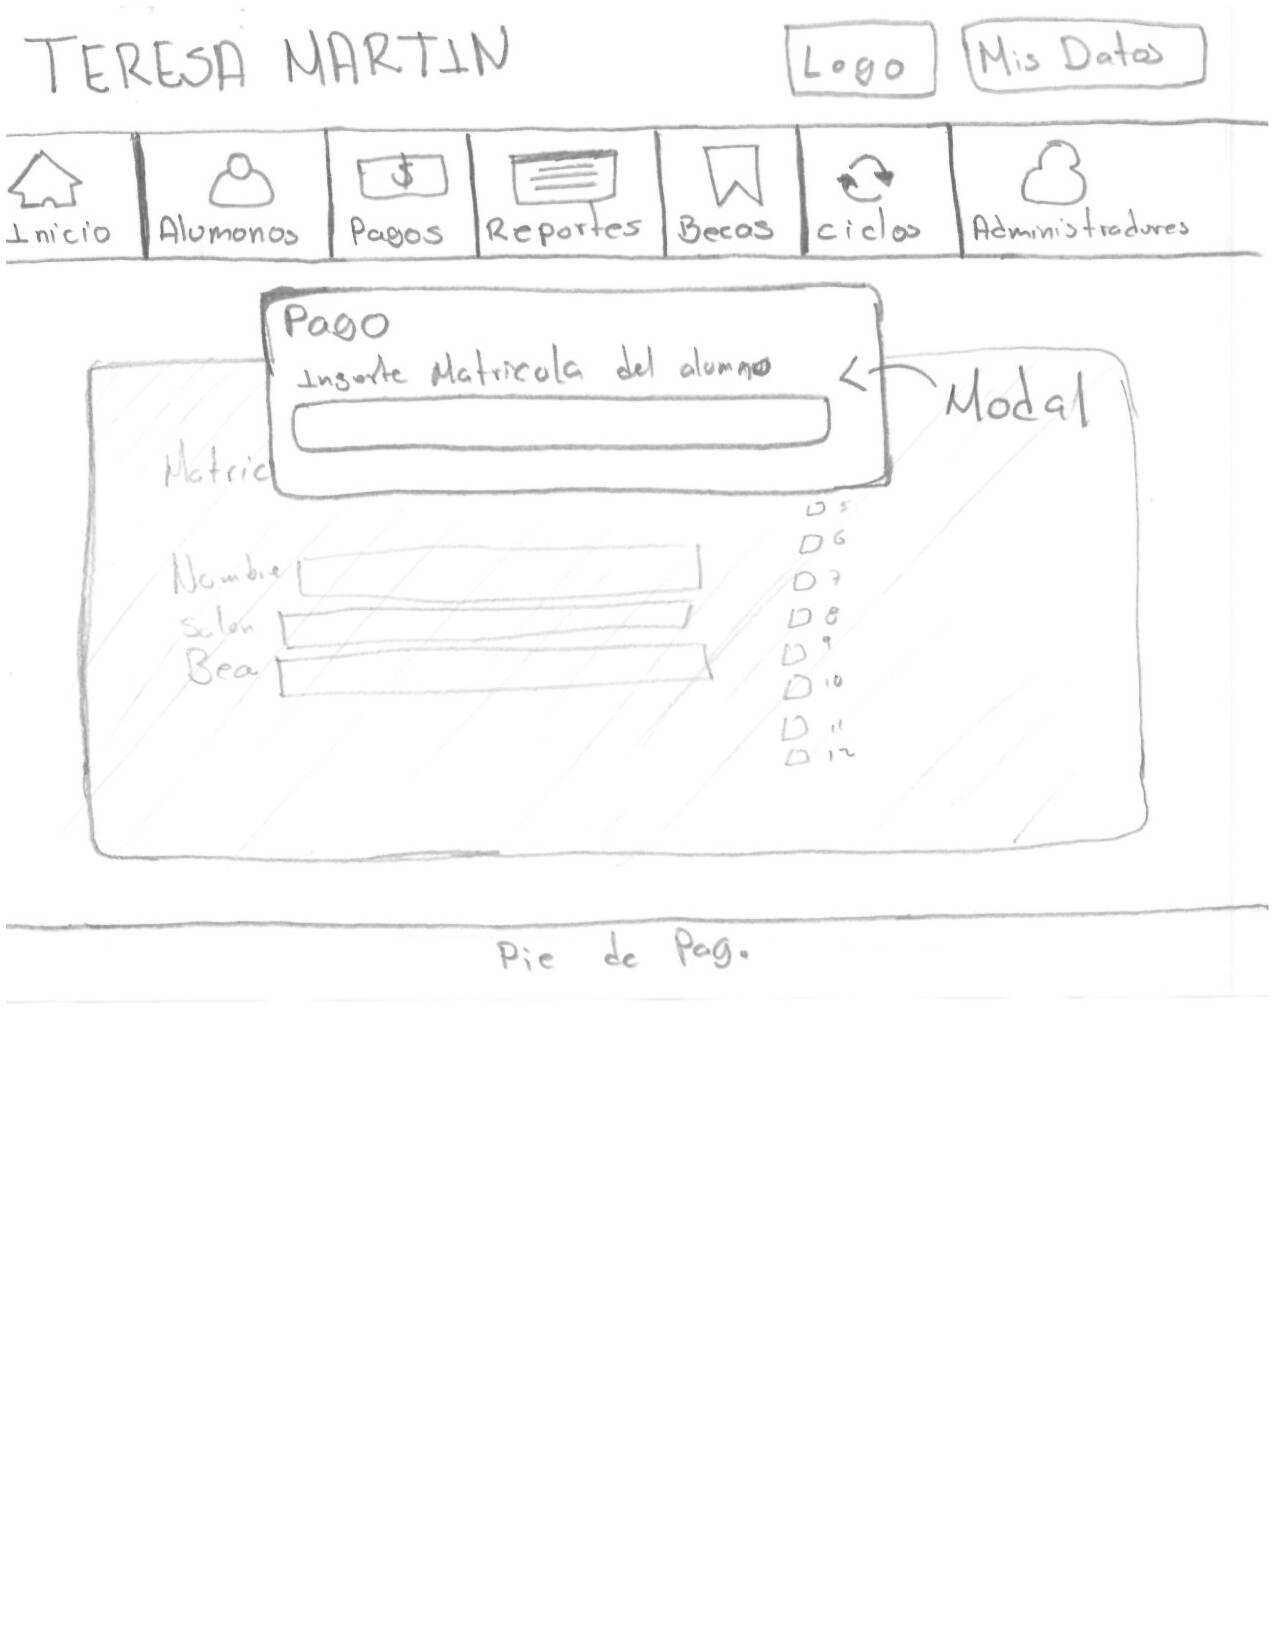 TERESA MARTIN
Logo
Mis Datos
$
Inicio
Alumonos
Pagos
Reportes
Becas
Ciclos
Administradores
Pago
Inserte Matricola del alumno
Modal
Matric
5
6
Nombre
7
Salon
8
9
Bea
10
11
12
Pie de Pag.